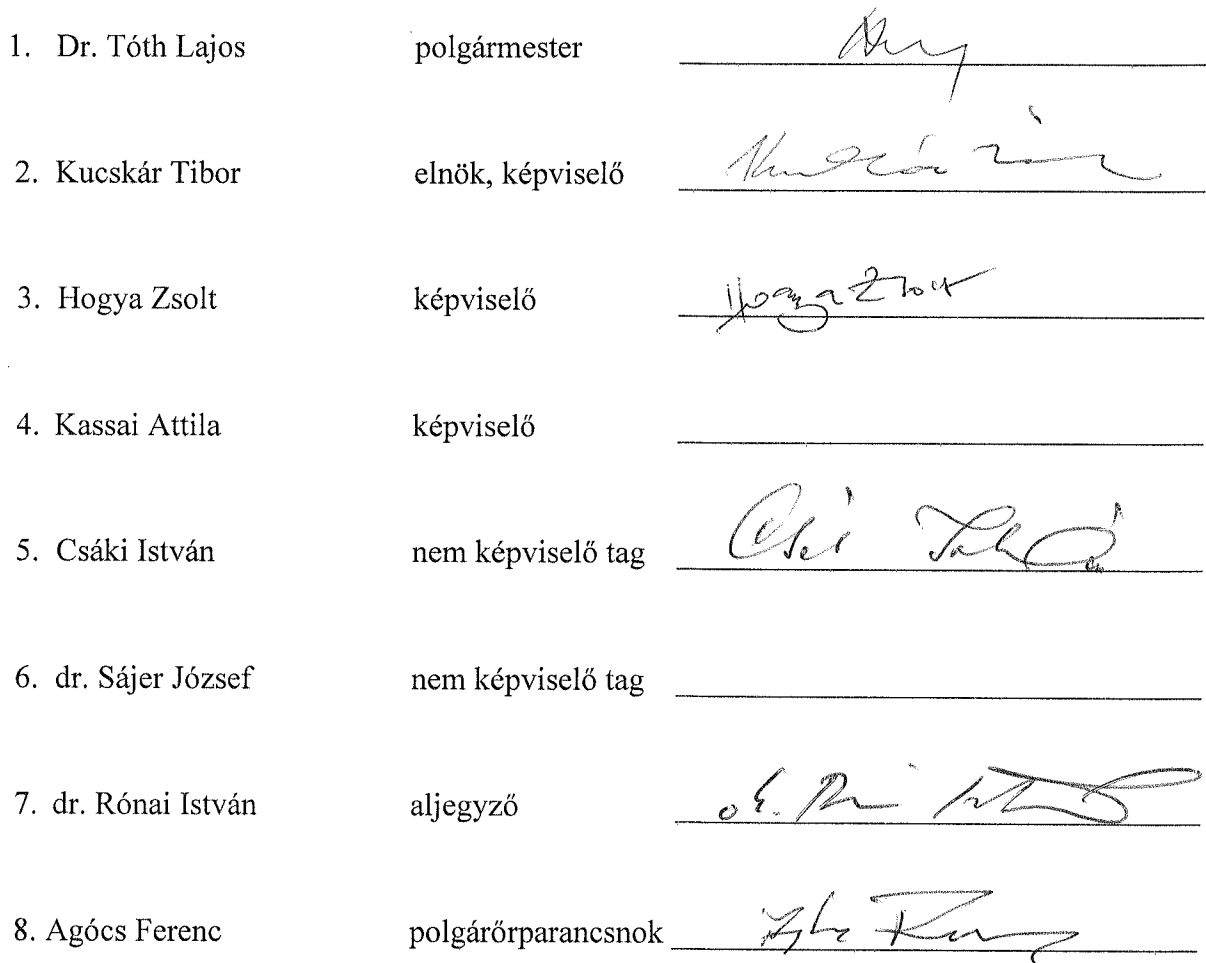 1. Dr. Tóth Lajos polgármester
2. Kucskár Tibor elnök, képviselő
3. Hogya Zsolt képviselő Hogya Zsolt
4. Kassai Attila képviselő
5. Csáki István nem képviselő tag
6. dr. Sájer József nem képviselő tag
7. dr. Rónai István aljegyző
8. Agócs Ferenc polgárőrparancsnok